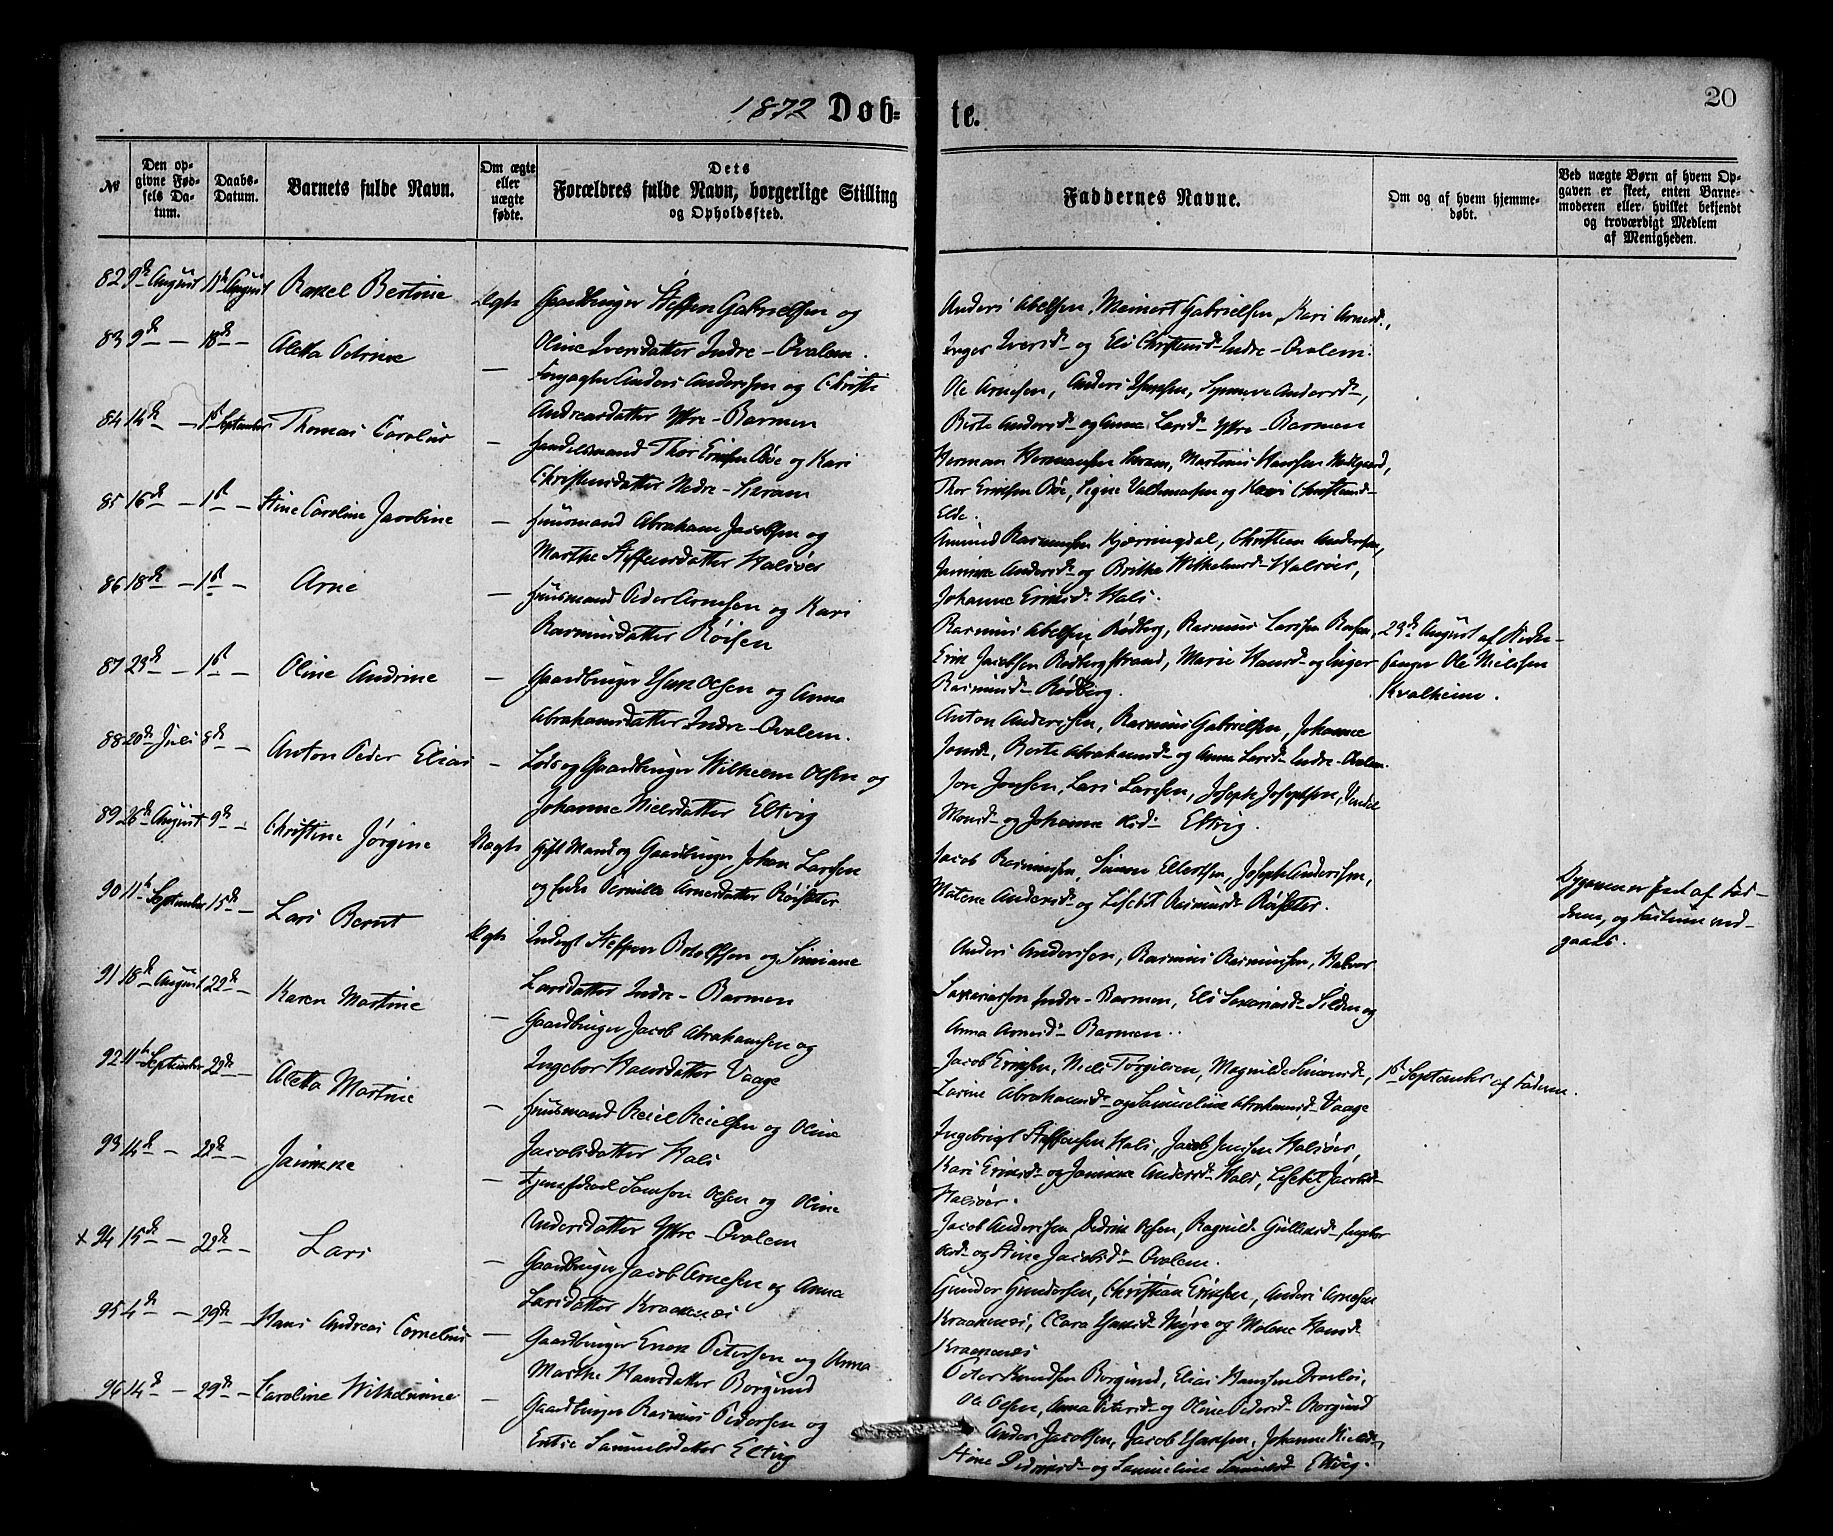 1872 Døb-
te.
20
№
Den op-
givne Fød-
sels Da-
tum.
Daabs-
Datum.
Barnets fulde Navn.
Om ægte
eller
uægte
fødte.
Dets
Forældres fulde Navn, borgerlige Stilling
og Opholdssted.
Faddernes Navne.
Om og af hvem hjemme-
døbt.
Ved uægte Børn af hvem Op-
gaven er skeet, enten Barne-
moderen eller hvilket bekjendt
og troværdigt Medlem
af Menigheden.
82 9de August 11te August Rakel Bertine Ægte Gaardbruger Steffen Gabrielsen og
Oline Iversdatter Indre-Ovalem.
Anders Abelsen, Meinert Gabrielsen, Kari Arnesd.,
Inger Iversd- og Eli Christensd- Indre-Ovalem.
83 9de — 18de — Aletta Petrine — Anders Andersen og Christi
Andreasdatter Ytre-Barmen
Ole Arnesen, Anders Andersd-,
Berte Andersd- og Anna Larsd- Ytre-Barmen
84 14de — 1st September Thomas Carolus — Handelsmand Thor Eriksen Bøe og Kari
Christensdatter Nedre-Haram
Herman Hermansen Haram, Martinus Hanssen
Thor Eriksen Bøe, Signe Valdemarsen og Kari Christensd-
Elde.
85 16de — 1st — Stine Caroline Jacobine — Huusmand Abraham Jacobsen og
Marthe Steffensdatter Halsør
Amund Rasmussen Kjærringdal, Christen Andersen,
Jamine Andersd- og Brithe Wilhelmsd- Halsør,
Johanne Eriksd- Hals.
86 18de — 1st — Arne — Huusmand Peder Arnesen og Kari
Rasmusdatter Røisen
Rasmus Abelsen Rødberg, Rasmus Larssen
Erik Jacobsen Rødbergstrand, Marie Hansd- og Inger
Rasmusd- Rødberg.
23de August af Kirke-
sanger Ole Nielssen
Kvalheim.
87 23de — 1st — Oline Andrine — Gaardbruger Isak Olsen og Anna
Abrahamsdatter Indre-Ovalem.
Anton Andersen, Rasmus Gabrielsen, Johanne
Jonsd-, Berte Abrahamsd- og Anna Larsd- Indre-Ovalem.
88 20de Juli 8de — Anton Peder Elias — Lods og Gaardbruger Wilhelm Olsen og
Johanne Nielsdatter Eltvig
Jon Jonsen, Lars Larssen, Joseph Josephsen,
Monsd- og Johanne Eltvig.
89 26de August 9de — Christine Jørgine Uægte Gift Mand og Gaardbruger Johan Larssen
og Enke Pernille Arnesdatter Røisæter
Jacob Rasmussen, Simon Ellertsen, Joseph Andersen,
Malene Andersd- og Lisebet Rasmusd- Røisæter.
Opgaven er skeet af Fad-
deren, og Faderen ved-
gaaet.
90 11te September 15de — Lars Bernt Ægte Inderst Steffen Botolfsen og Simiane
Larsdatter Indre-Barmen
Anders Andersen, Rasmus Rasmussen, Halvor
Sakariassen Indre-Barmen, Eli Sakariasd- Silden og
Anna Arnesd- Barmen.
91 18de August 22de — Karen Martine — Gaardbruger Jacob Abrahamsen og
Ingebor Hansdatter Vaage
Jacob Eriksen, Niels Torgilsen, Magnilde Simonsd-,
Larine Abrahamsd- og Samueline Abrahamsd- Vaage
1st September af Faderen.
92 11te September 22de — Aletta Martine — Huusmand Reiel Reielsen og Oline
Jacobsdatter Hals
Ingebrigt Steffensen Hals, Jacob Jenssen Halsør,
Kari Eriksd- og Jamine Andersd- Hals, Lisebet Jacobsd-
Halsør.
93 14de — 22de — Jamine — Tjenestkarl Samson Olsen og Oline
Andersdatter Ytre-Ovalem
Jacob Andersen, Olsen, Ragnild Gullaksd-, Ingebor
og Stine Jacobsd- Ovalem.
x 94 15de — 22de — Lars — Gaardbruger Jacob Arnesen og Anna
Larsdatter Kraakenæs
Gunder Gundersen, Christian Eriksen, Anders Arnesen
Kraakenæs, Clara Isaksd- Myre og Malene Hansd-
Kraakenæs
95 4de — 29de — Hans Andreas Cornelius — Gaardbruger Enok Petersen og Anna
Marthe Hansdatter Borgund
Peter Knudsen Borgund, Elias Hanssen
Ole Olsen, Anna Petersd- og Oline Pedersd- Borgund
96 14de — 29de — Caroline Wilhelmine — Gaardbruger Rasmus Pedersen og
Samuelsdatter Eltvig
Anders Jacobsen, Jacob Isaksen, Johanne Nielsd-,
Stine og Samueline Eltvig.